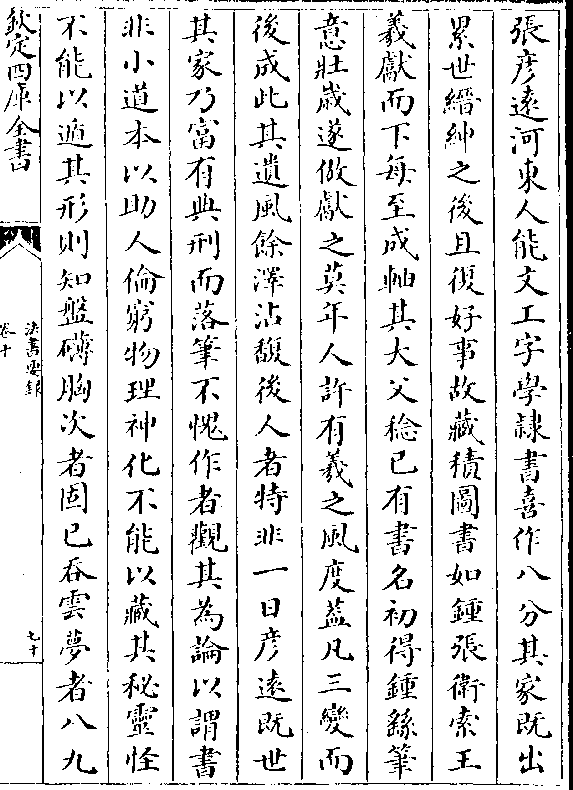 張彦遠河東人能文工字學隷書喜作八分其家既出
累世縉紳之後且復好事故藏積圖書如鍾張衛索王
羲獻而下每至成軸其大父稔已有書名初得鍾繇筆
意壯歳遂倣獻之莫年人許有羲之風度葢凡三變而
後成此其遺風餘澤沾馥後人者特非一日彦遠既世
其家乃富有典刑而落筆不愧作者觀其為論以謂書
非小道本以助人倫窮物理神化不能以藏其秘靈怪
不能以遁其形則知盤礴胸次者固已吞雲夢者八九
欽定四庫全書
法書要錄
卷十
七十